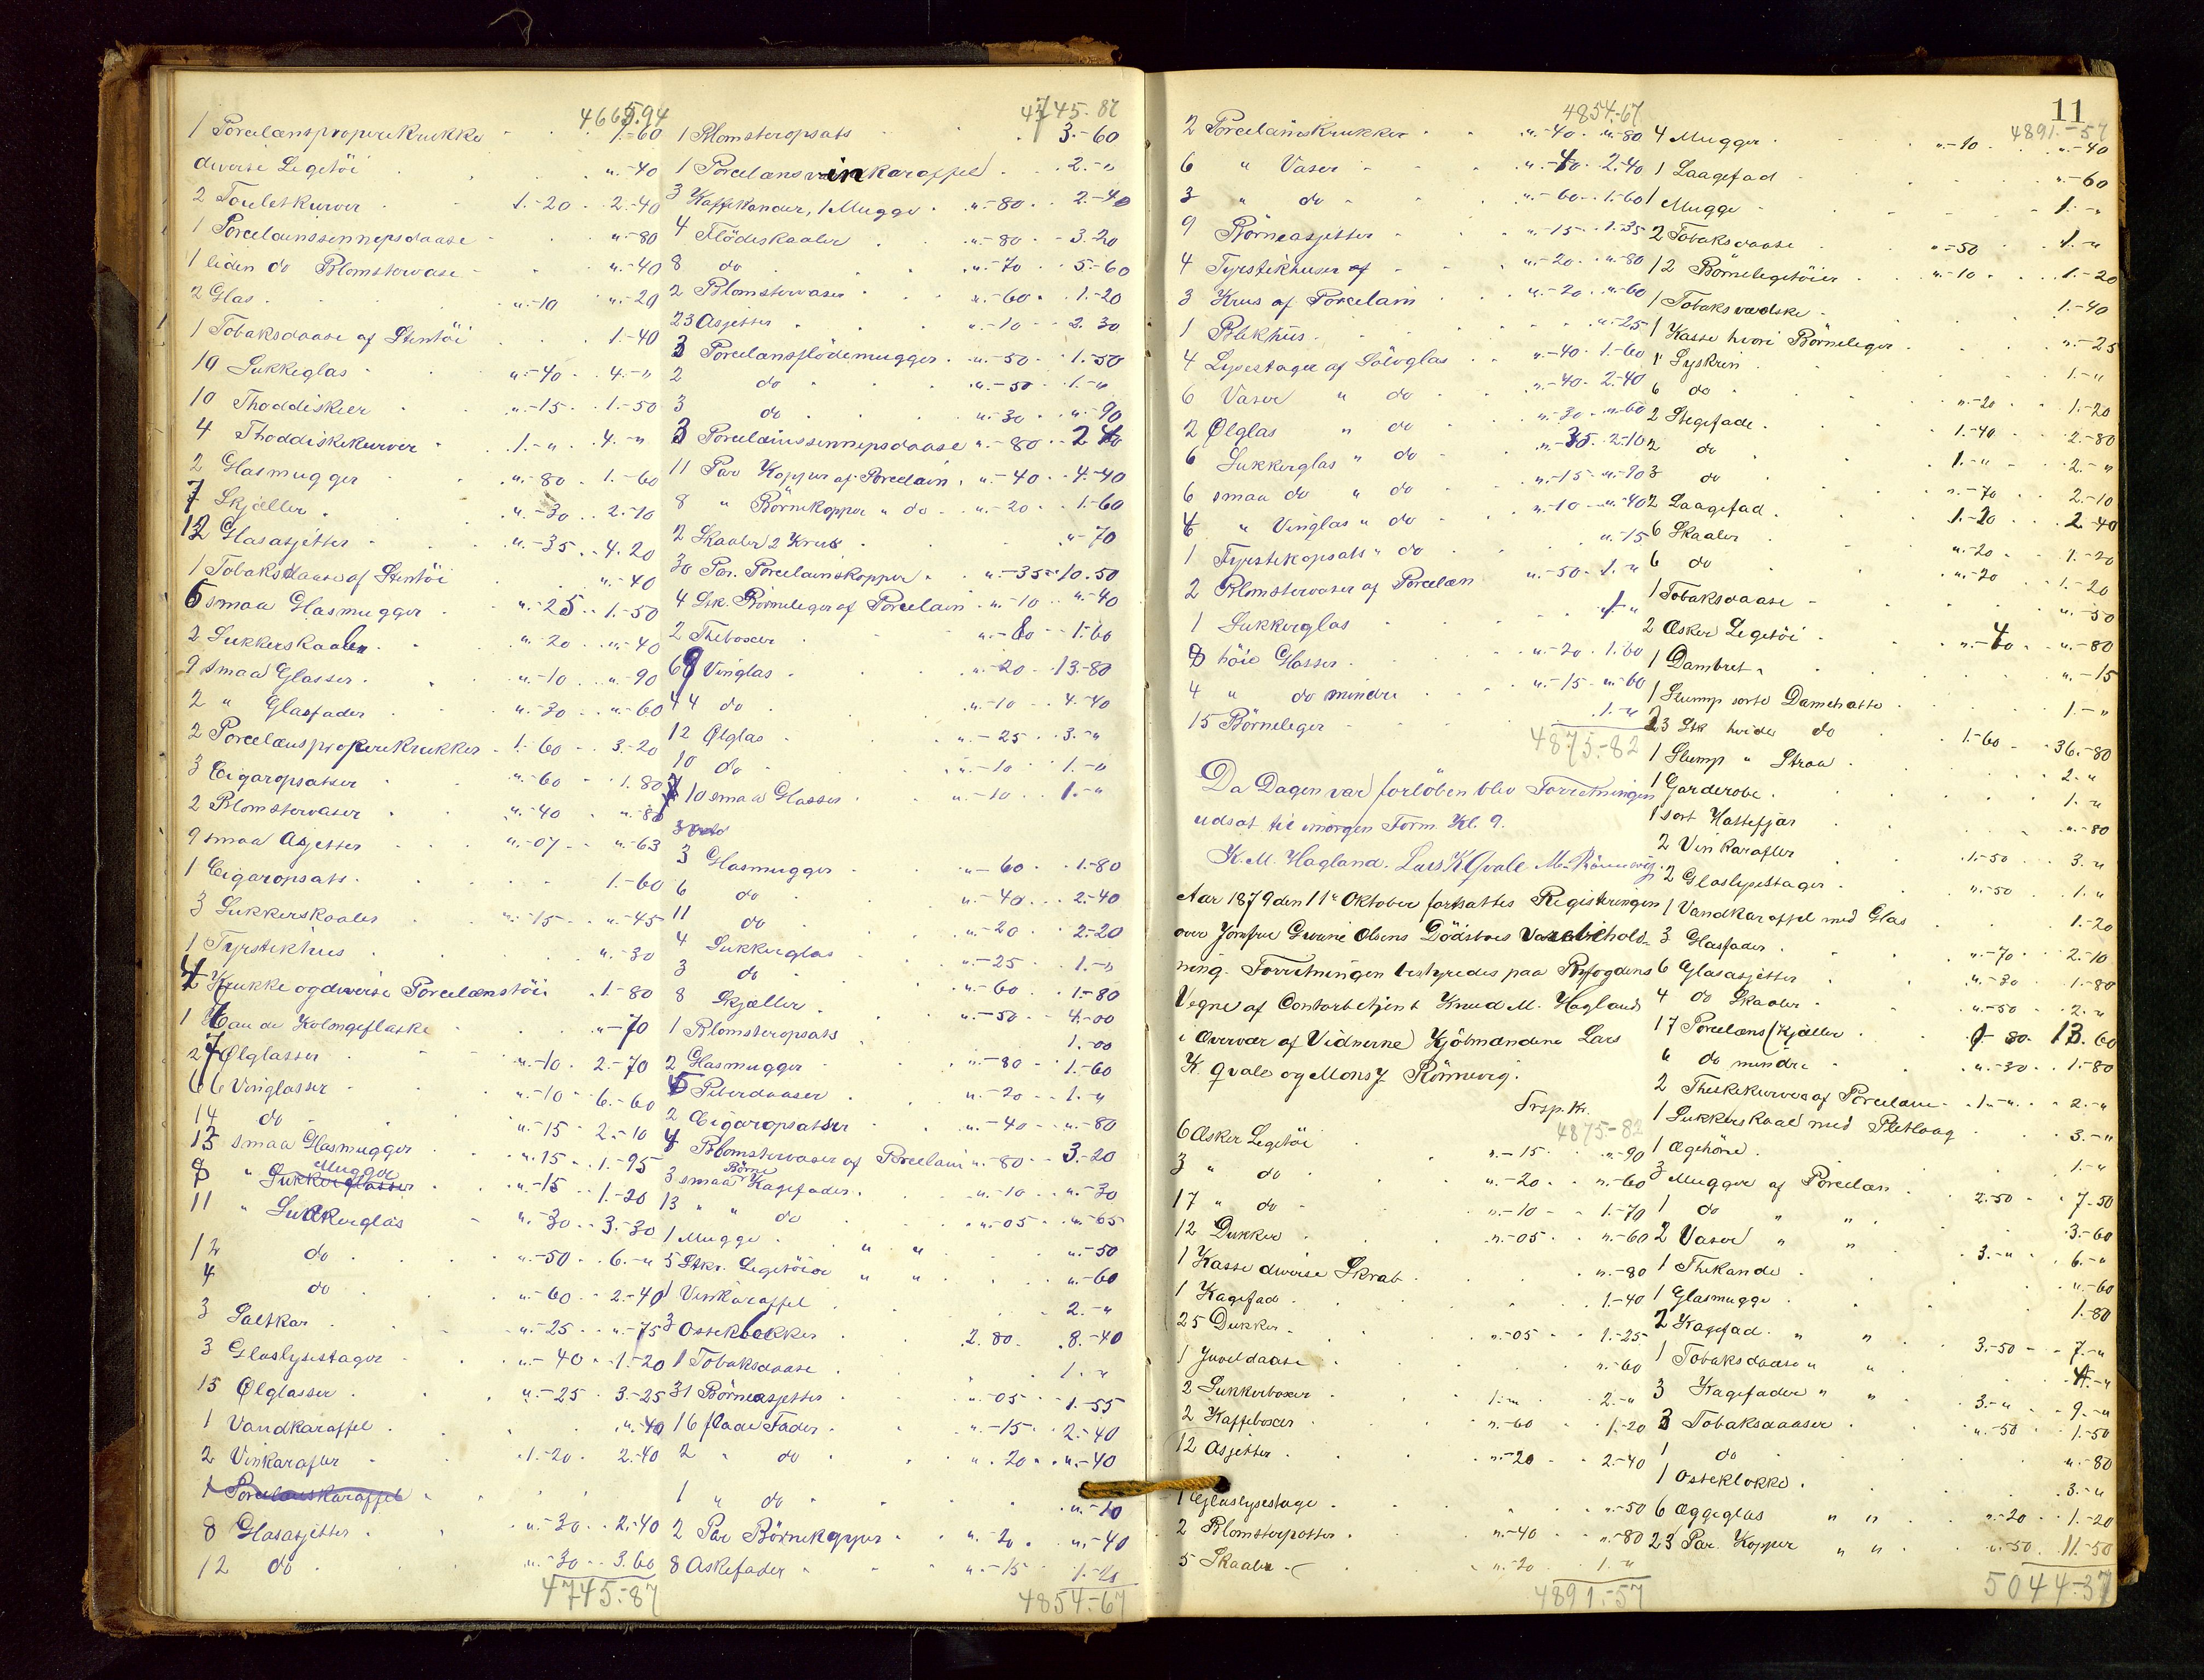 4665.94
1 Porcelænspropirekrukke 1.-60
diverse Legetöi ".-40
2 Touletkurver 1.-20 2.-40
1 Porcelainssennepsdaase ".-80
1 liden do Blomstervase ".-40
2 Glas ".-10 ".-20
1 Tobaksdaase af Stentöi 1.-40
10 Sukkeglas ".-40 4.-"
10 Thoddiskeer ".-15 1.-50
4 Thoddiskekurver 1.-" 4.-"
2 Glasmugger ".-80 1.-60
7 Skjæller ".-30 2.-10
12 Glasasjetter ".-35 4.20
1 Tobaksdaase af Stentöi ".-40
6 smaa Glasmugger ".-25 1.-50
2 Sukkerskaaler ".-20 ".-40
9 smaa Glasser ".-10 ".-90
2 " Glasfader ".-30 ".-60
2 Porcelænspropirekrukker 1.-60 3.-20
3 Cigaropsatser ".-60 1.80
2 Blomstervaser ".-40 ".-80
9 smaa Asjetter ".-07 ".-63
1 Cigaropsats 1.-60
3 Sukkerskaaler ".-15 ".-45
1 Fyrstikhus ".-30
1 Krukke og diverse Porcelænstöi 1.-80
1 Eau de Kolongeflaske "-70
27 Ølglasser ".-10 2.-70
66 Vinglasser ".-10 6.-60
14 do ".-15 2.-10
13 smaa Glasmugger ".15 1.-95
8 " Mugger ".-15 1.-20
11 " Sukkerglas ".-30 3.-30
12 do ".-50 6.-"
4 do ".-60 2.-40
3 Saltkar ".-25 ".-75
3 Glaslysestager ".-40 1.-20
13 Ølglasser ".-25 3.-25
1 Vandkaraffel ".-40
2 Vinkarafler 1.-20 2.-40
1 Porcelænskaraffel
8 Glasasjetter ".-30 2.-40
12 do ".-30 3.60
4745.-87
4745.-87
1 Blomsteropsats 3.-60
1 Porcelænsvinkaraffel 2.-"
3 Kaffekander, 1 Mugge ".-80 2.-40
4 Flödeskaaler ".-80 3.20
8 do ".-70 5.-60
2 Blomstervaser ".-60 1.-20
23 Asjetter ".-10 2.30
3 Porcelænsflödemugger ".-50 1.-50
2 do ".-50 1.-"
3 do ".-30 ".-90
3 Porcelainssennepsdaase ".-80 2.40
11 Par Kopper af Porcelain ".-40 4.-40
8 " Börnekopper " do ".-20 1.-60
2 Skaaler 2 Krus "-70
30 Par. Porcelainskopper ".-35 10.50
4 Stk. Börneleger af Porcelain ".-10 ".-40
2 Theboxer ".-80 1.60
69 Vinglas ".-20 13.-80
44 do ".-10 4.-40
12 Ølglas ".-25 3.-"
10 do ".-10 1.-"
10 smaa Glasser ".-10 1.-"
3 Glasmugger ".-60 1.-80
6 do ".-40 2.-40
11 do ".-20 2.-20
4 Sukkerglas ".-25 1.-"
3 do ".-60 1.-80
8 Skjæller ".-50 4.-00
1 Blomsteropsats 1.-00
2 Glasmugger ".-80 1.-60
5 Peberdaaser ".-20 1.-"
2 Cigaropsatser ".-40 ".-80
4 Blomstervaser af Porcelain ".-80 3.-20
3 smaa Börne Kagefader ".-10 ".-30
13 " " do ".-05 ".-65
1 Mugge " " ".-50
5 Stkr. Legetöier " " ".-60
1 Vinkaraffel 2.-"
3 Osteklokker 2.80 8.-40
1 Tobaksdaase 1.-"
31 Börneasjetter ".-05 1.-55
16 flade Fader ".-15 2.-40
2 " do ".20 ".-40
1 " do ".-10
2 Par Börnekopper ".-20 ".-40
8 Askefader ".-15 1.-20
4854.-67
11
4854.-67
2 Porcelainskrukker ".-40 ".-80
6 " Vaser ".-40 2.-40
3 " do ".-60 1.-60
9 Börneasjetter ".-15 1.35
4 Fyrstikhuser af ".-20 ".-80
3 Krus af Porcelain ".-20 ".-60
1 Blekhus ".-25
4 Lysestager af Sölvglas ".-40 1.-60
6 Vaser " do ".-40 2.40
2 Ølglas " do ".-30 ".-60
6 Sukkerglas " do ".-35 2-10
6 smaa do " do ".-15 ".-90
4 " Vinglas " do ".-10 ".-40
1 Fyrstikopsats " do ".-15
2 Blomstervaser af Porcelæn ".-50 1.-"
1 Sukkerglas 1.-"
8 höie Glasser ".-20 1.60
4 " do mindre ".-15 ".-60
15 Börneleger 1.-"
4875.-82
Da Dagen var forlöben blev Forretningen
udsat til imorgen Form. Kl. 9.
K. M. Hagland. Lars K Qvale M. Rönnevig
Aar 1879 den 11te Oktober fortsattes Registeringen
over Jomfru Gurine Olsens Dödsboes Varebehold-
ning. Forretningen bestyredes paa Byfogdens
Vegne af Contorbetjent Knud M. Hagland
i Overvær af Vidnerne Kjöbmændene Lars
K. Qvale og Mons J. Rönnevig.
Trsp. Kr. 4875-82
6 Æsker Legetöi ".-15 ".-90
3 " do ".-20 ".-60
17 " do ".-10 1.-70
12 Dukker ".-05 ".-60
1 Kasse diverse Skrab ".-80
1 Kagefad 1.-40
25 Dukker ".-05 1.-25
1 Juveldaase ".-60
2 Sukkerboxer 1.-" 2.-"
2 Kaffeboxer ".-60 1.-20
12 Asjetter ".-20 2.-40
1 Glaslysestage ".-50
2 Blomsterpotter ".-40 ".-80
5 Skaaler ".-20 1.-"
4891.-57
4891.-57
4 Mugger ".-10 ".-40
1 Laagefad ".-60
1 Mugge 1.-"
2 Tobaksdaase ".-50 1.-"
12 Börnelegetöier ".-10 1.-20
1 Tobaksvædske 1.-40
1 Kasse hvori Börneleger ".-25
1 Syskrin 1.-"
6 do ".-20 1.-20
2 Stegefade 1.-40 2.-80
2 do 1.-" 2.-"
3 do ".-70 2.-10
2 Laagefad 1.-20 2.-40
6 Skaaler ".-20 1.-20
6 do ".-20 1.-20
1 Tobaksdaase ".-50
2 Æsker Legetöi ".-40 ".-80
1 Dambret ".-15
1 Slump sorte Damehatte 1.-"
23 Stk hvide do 1.-60 36.-80
1 Slump " Straa 2.-"
1 Garderobe 1.-"
1 sort Hattefjær ".-80
2 Vinkarafler 1.-50 3.-"
2 Glaslysestager ".-50 1.-"
1 Vandkaraffel med Glas 1.-20
3 Glasfader ".-70 2.-10
6 Glasasjetter ".-30 1.-80
4 do Skaaler ".-50 2.-"
17 Porcelænsskjæller "-80 13.60
6 do mindre ".-30 1.-80
2 Theskekurver af Porcelain 1.-" 2.-"
1 Sukkerskaal med Pletlaag 3.-"
1 Ægehöne 1.-"
3 Mugger af Porcelæn 2.50 7.50
1 do " " 3.-60
2 Vaser " " 3.-" 6.-"
1 Thekande ".-60
1 Glasmugge 1.80
2 Kagefad " " 3.-50 7.-"
1 Tobaksdaase " " 1.-"
3 Kagefader " " 3.-" 9.-"
3 Tobaksdaaser ".-50 1.-50
1 do ".-80
1 Osteklokke 3.-"
6 Æggeglas " " ".-20 1.-20
23 Par. Kopper " " ".-50 11.-50
5044.-37